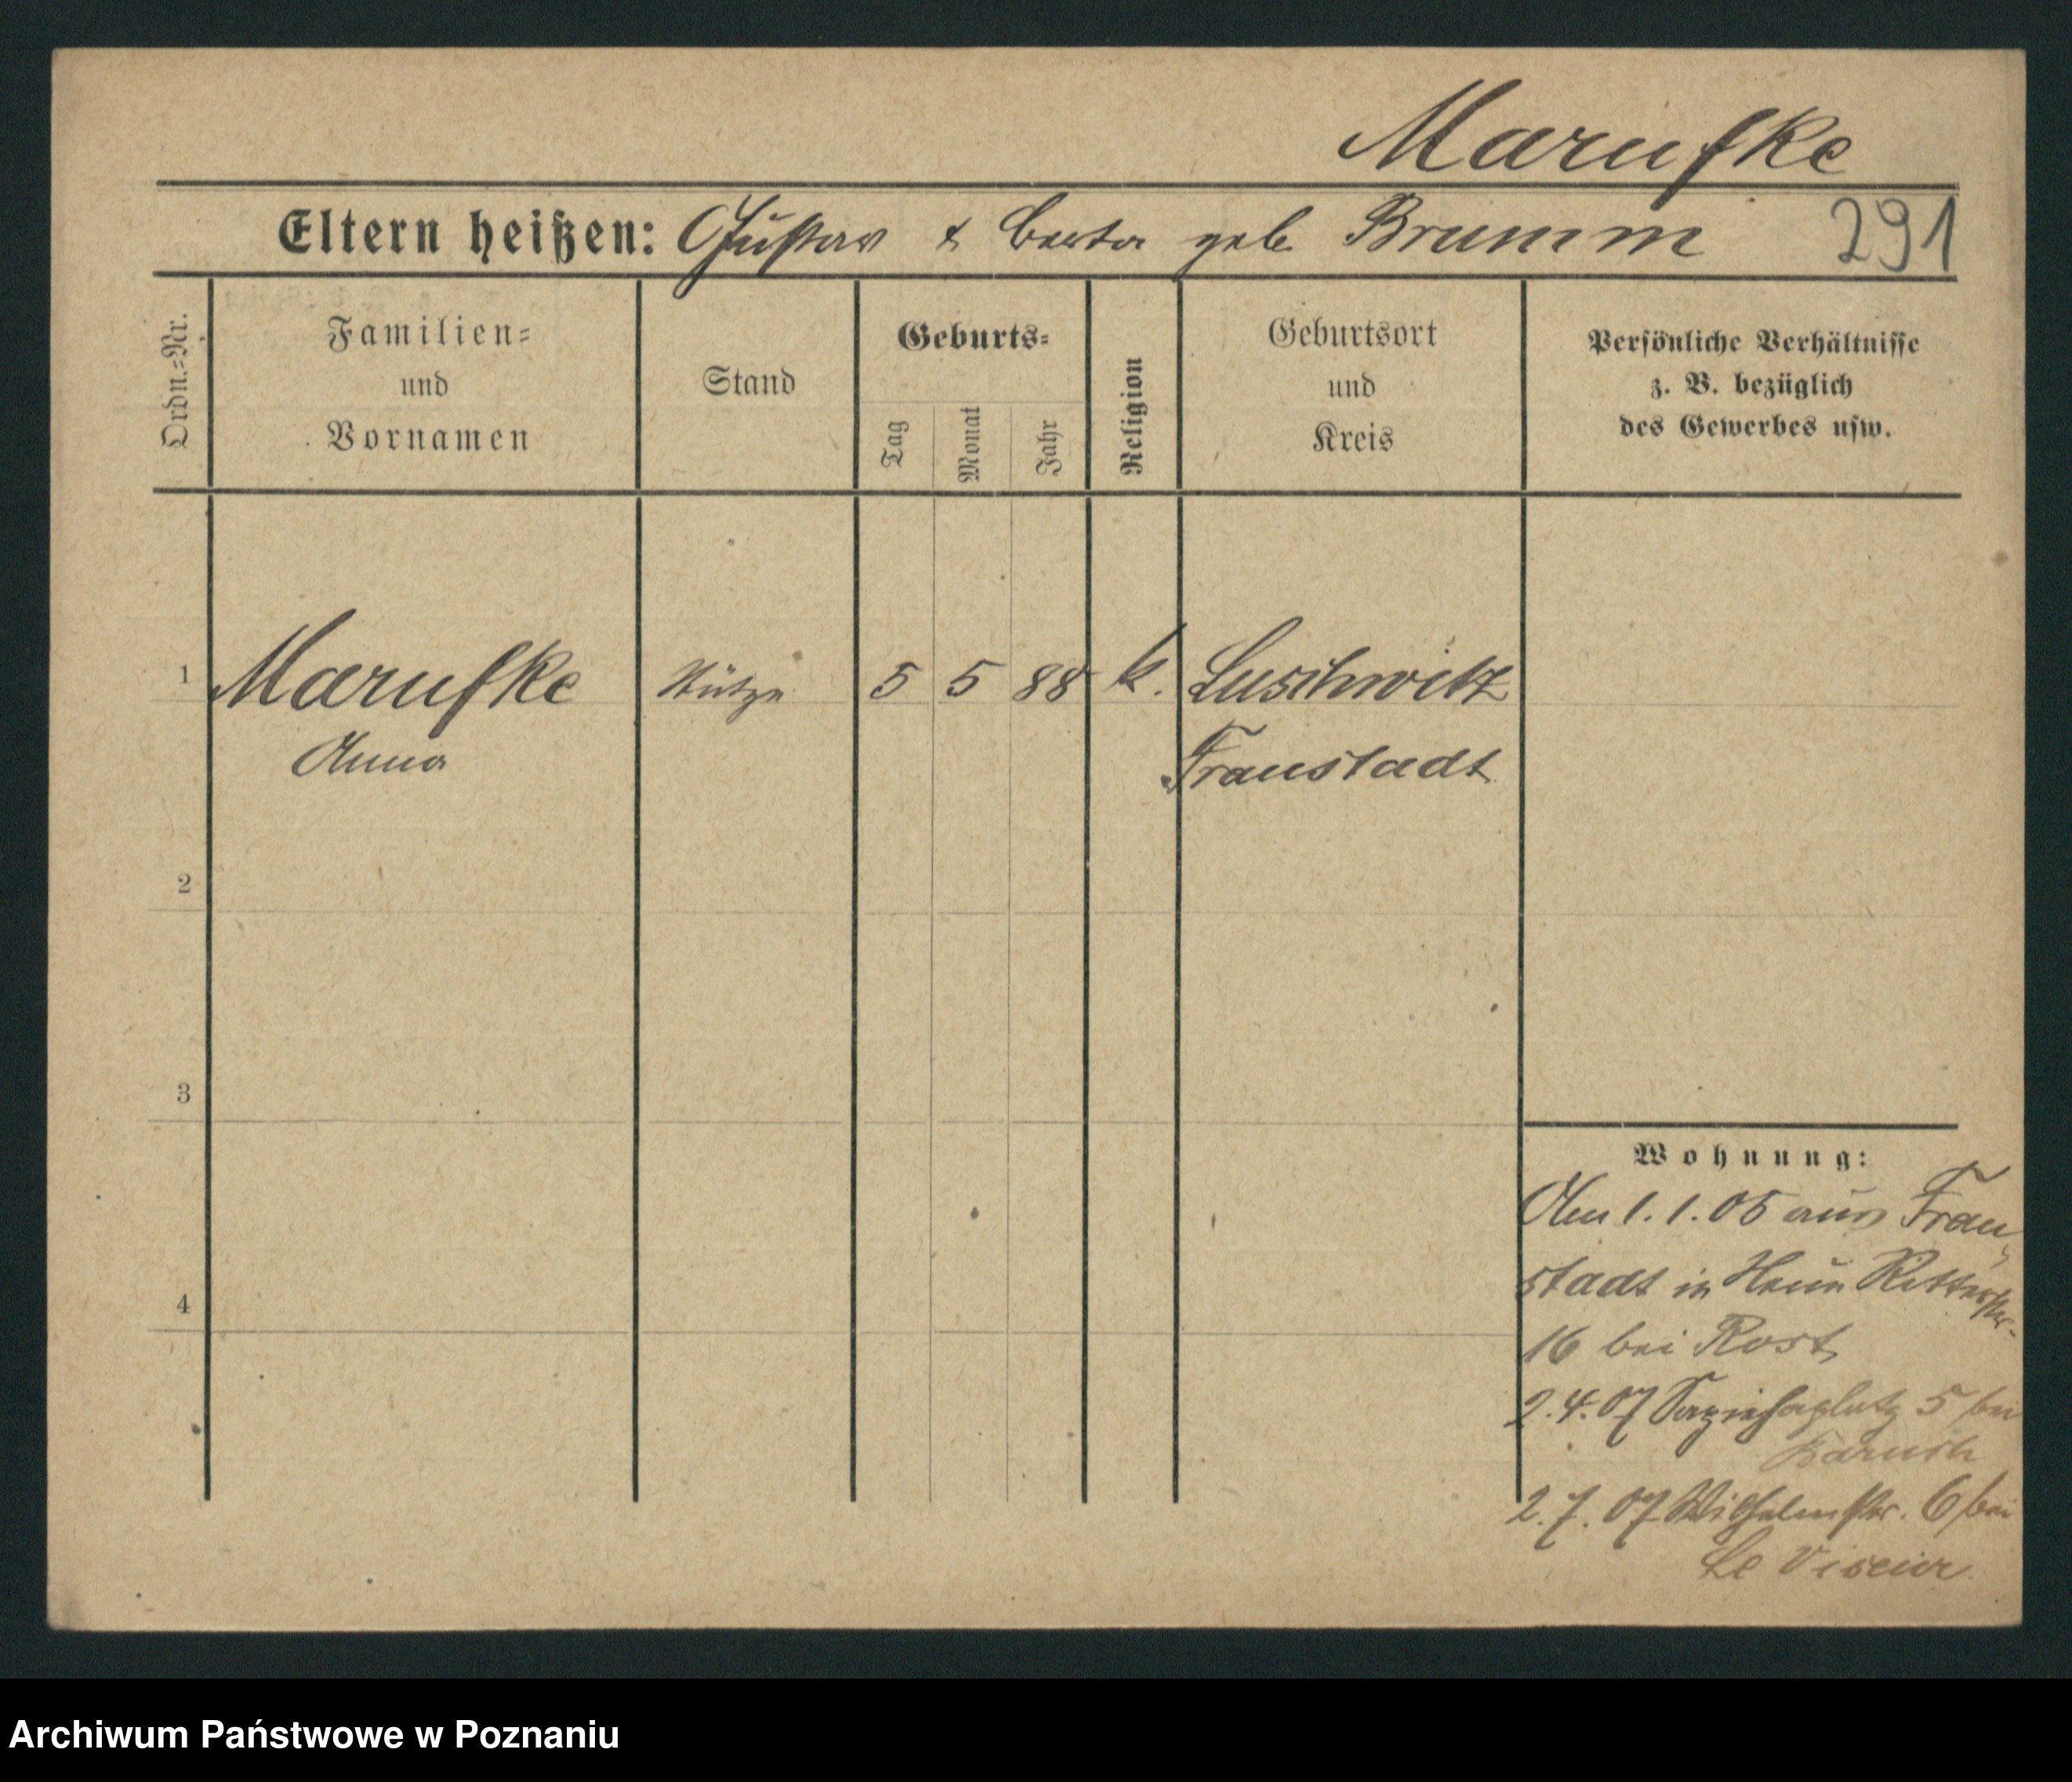 Marufke
Eltern heißen: Gustav & Berta geb. Brumm 291
Ordn.=Nr.
Familien=
und
Vornamen
Stand
Geburts=
Tag
Monat
Jahr
Religion
Geburtsort
und
Kreis
Persönliche Verhältnisse
z. B. bezüglich
des Gewerbes usw.
1 Marufke Stütze 5 5 88 k. Luschwitz
Anna Fraustadt
2
3
4
Wohnung:
Am 1.1.05 aus Frau
stadt in Ritterstr.
16 bei Rost
2.4.07 Sapiehaplatz 5 bei
Barusch
2.7.07 Wilhelmstr. 6 bei
Le Viseur
Archiwum Państwowe w Poznaniu